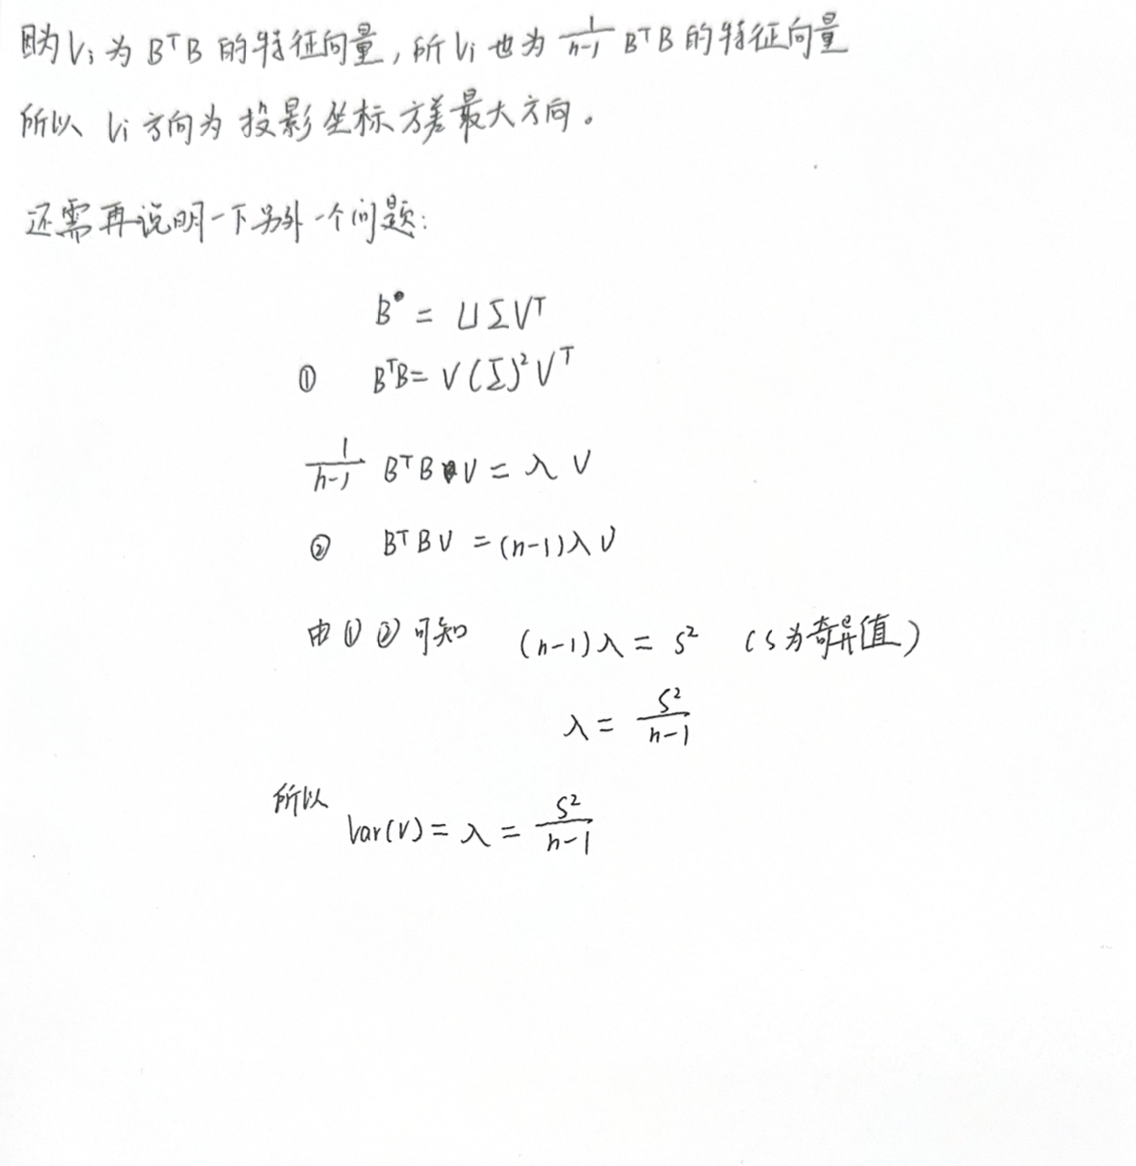 因为 Vi 为 BᵀB 的特征向量, 所 Vi 也为 1/(n-1) BᵀB 的特征向量
所以 Vi 方向为 投影坐标方差最大方向。
还需再说明一下另外一个问题:
B = UΣVᵀ
① BᵀB = V(Σ)²Vᵀ
1/(n-1) BᵀB V = λ V
② BᵀBV = (n-1)λV
由①②可知 (n-1)λ = S² (S为奇异值)
λ = S²/(n-1)
所以
Var(V) = λ = S²/(n-1)